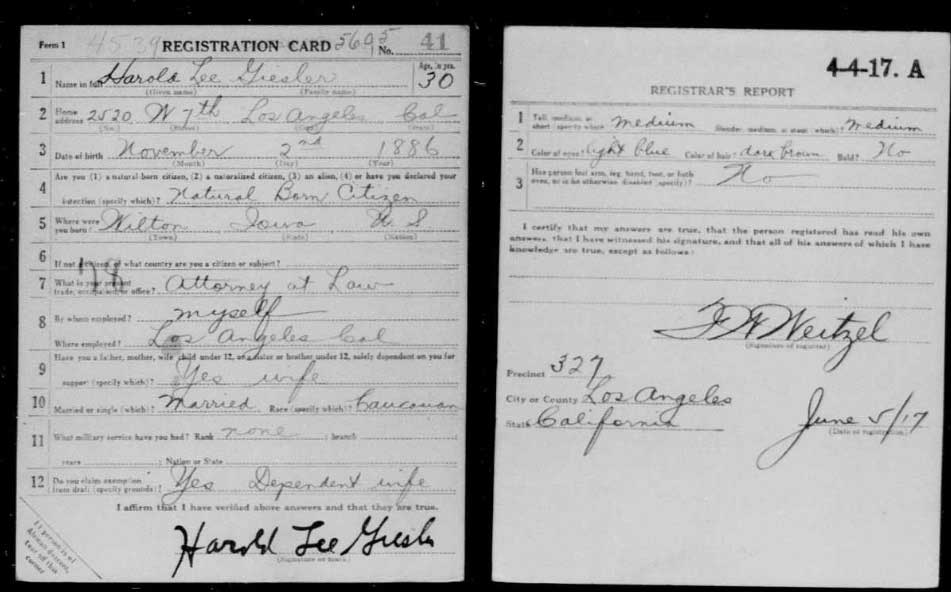 Form 1 4539 REGISTRATION CARD 5695 No. 41
1 Name in full Harold Lee Giesler Age, in yrs. 30
(Given name) (Family name)
2 Home address 2520 W 7th Los Angeles Cal
(No.) (Street) (City) (State)
3 Date of birth November 2nd 1886
(Month) (Day) (Year)
4 Are you (1) a natural-born citizen, (2) a naturalized citizen, (3) an alien, (4) or have you declared your
intention (specify which)? Natural Born Citizen
5 Where were you born? Wilton Iowa U S
(Town) (State) (Nation)
6 If not a citizen, of what country are you a citizen or subject?
78
7 What is your present trade, occupation, or office? Attorney at Law
8 By whom employed? myself
Where employed? Los Angeles Cal
9 Have you a father, mother, wife, child under 12, or a sister or brother under 12, solely dependent on you for
support (specify which)? Yes wife
10 Married or single (which)? Married Race (specify which)? Caucasian
11 What military service have you had? Rank none ; branch
years ; Nation or State
12 Do you claim exemption from draft (specify grounds)? Yes Dependent wife
I affirm that I have verified above answers and that they are true.
Harold Lee Giesler
(Signature or mark)
If person is of
African descent,
tear off this
corner
4-4-17. A
REGISTRAR'S REPORT
1 Tall, medium, or short (specify which)? medium Slender, medium, or stout (which)? medium
2 Color of eyes? light blue Color of hair? dark brown Bald? No
3 Has person lost arm, leg, hand, foot, or both
eyes, or is he otherwise disabled (specify)? No
I certify that my answers are true, that the person registered has read his own
answers, that I have witnessed his signature, and that all of his answers of which I have
knowledge are true, except as follows:
F W Weitzel
(Signature of registrar)
Precinct 327
City or County Los Angeles
State California
June 5/17
(Date of registration)